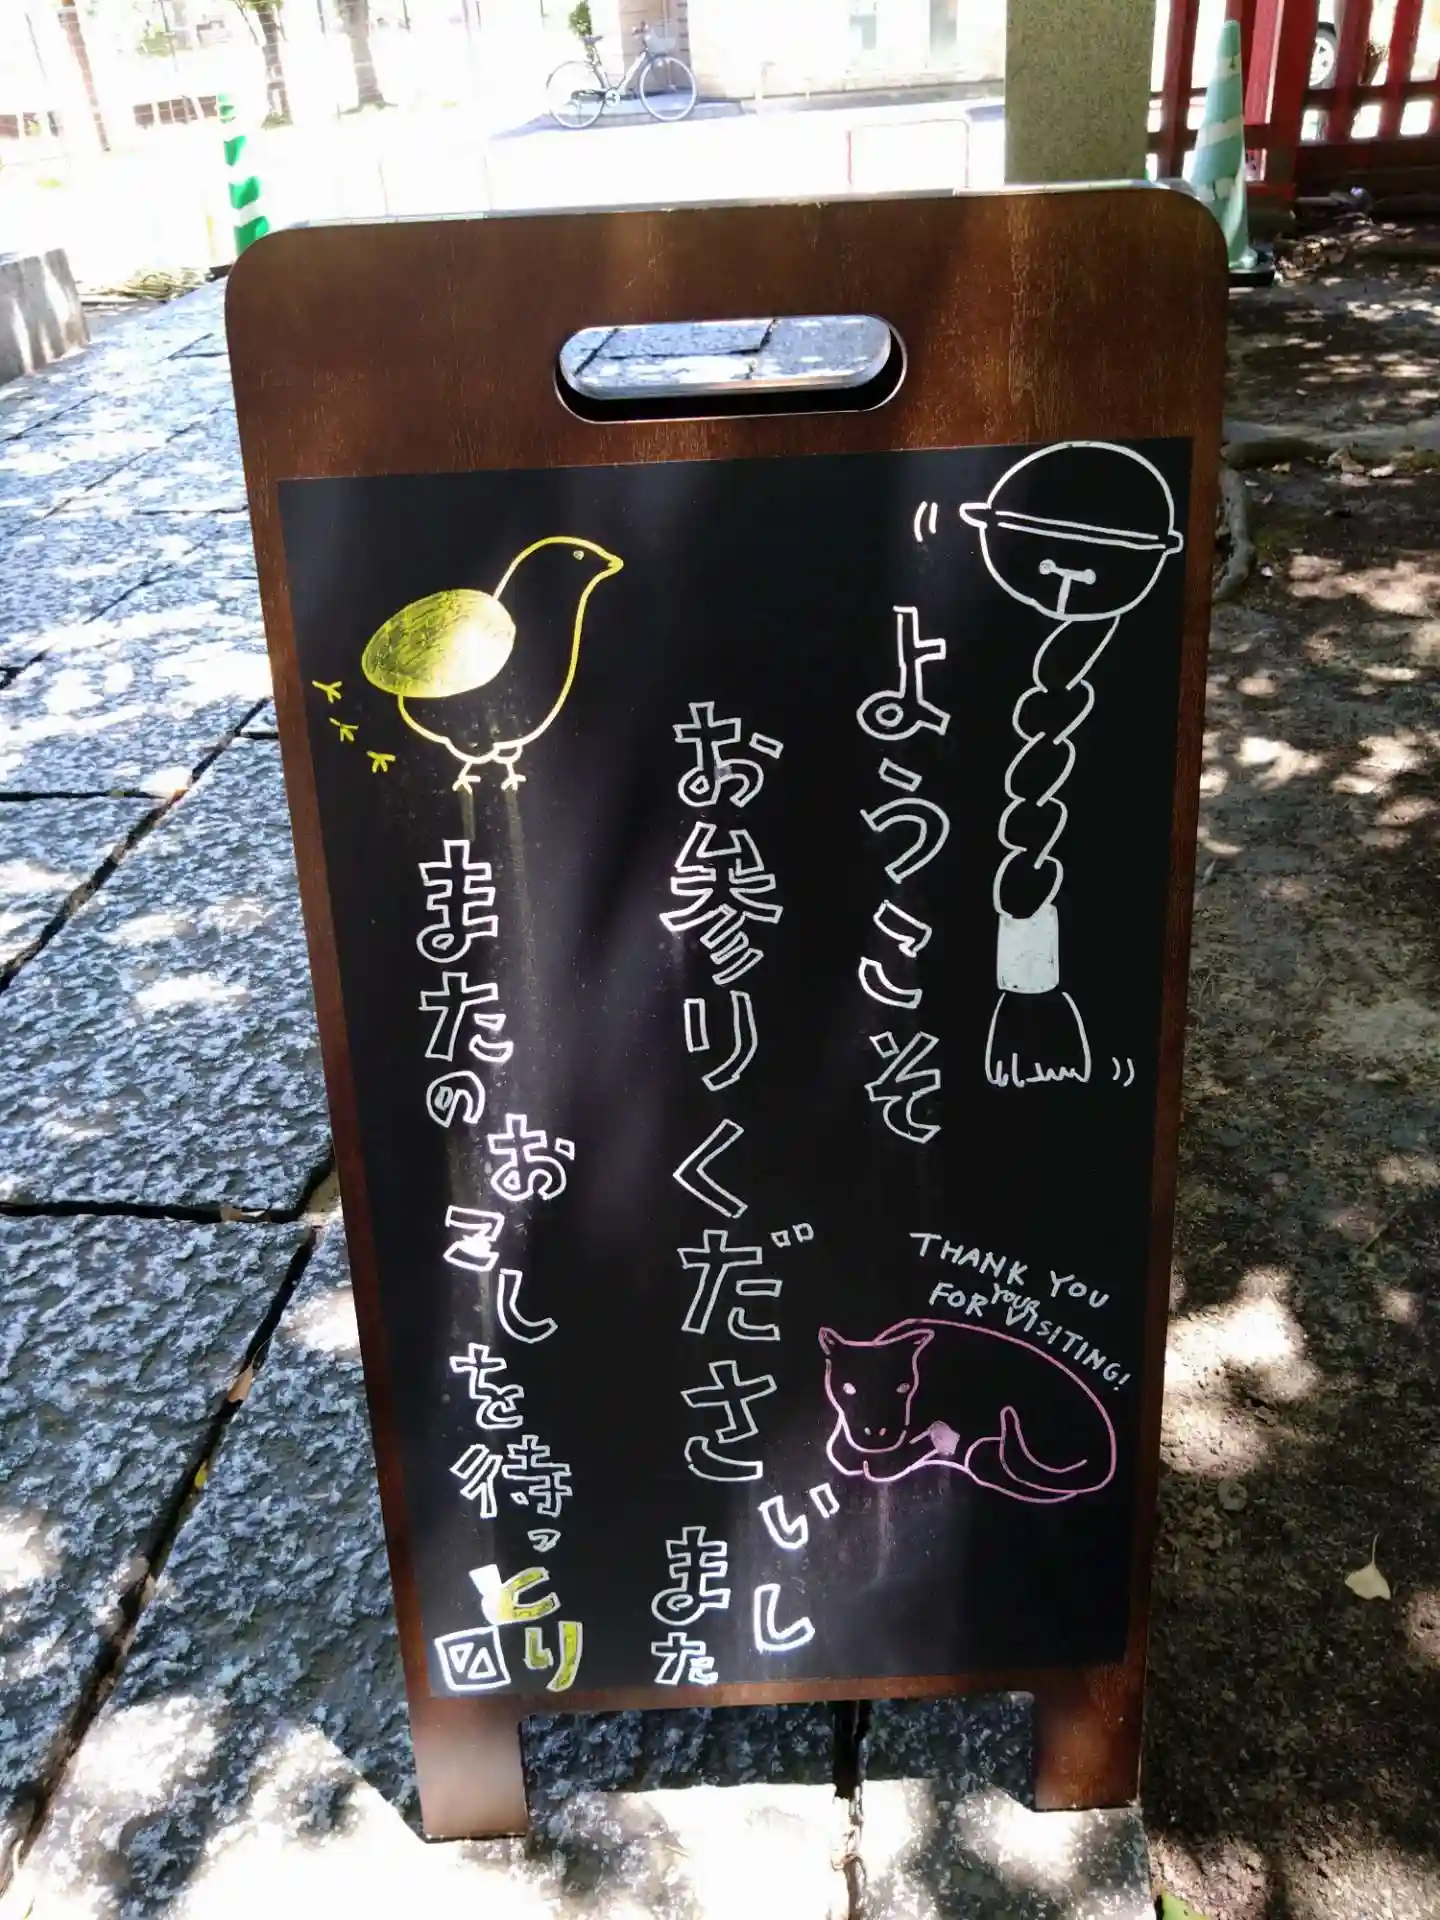 ようこそ
お参りくださいまし
また
またのおこしを待っとり〼
THANK YOU
FOR YOUR VISITING!